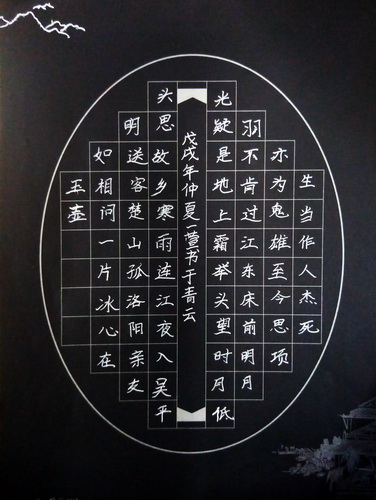 生当作人杰死
亦为鬼雄至今思项
羽不肯过江东床前明月
光疑是地上霜举头望时月低
戊戌年仲夏一萱书于青云
头思故乡寒雨连江夜入吴平
明送客楚山孤洛阳亲友
如相问一片冰心在
玉壶